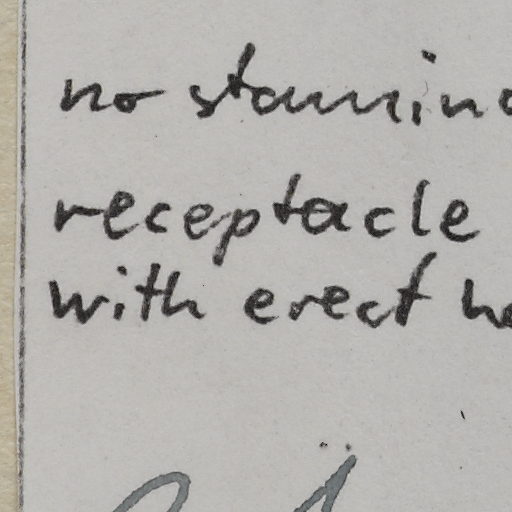 no stamino
receptacle
with erect